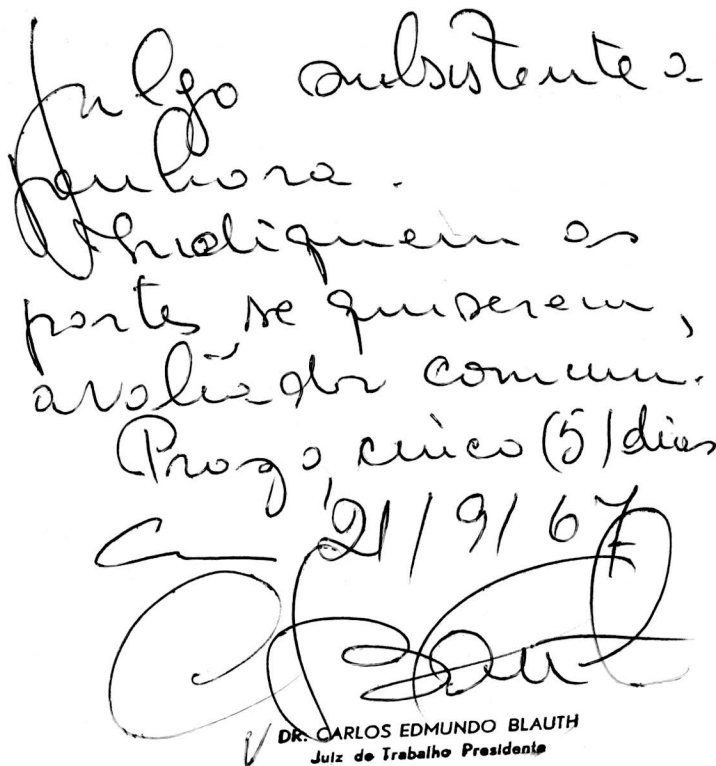 Julgo subsistente a
penhora.
Indiquem as
partes se quiserem,
avaliador comum.
Prazo, cinco (5) dias
Em 21/9/67
DR. CARLOS EDMUNDO BLAUTH
Juiz do Trabalho Presidente